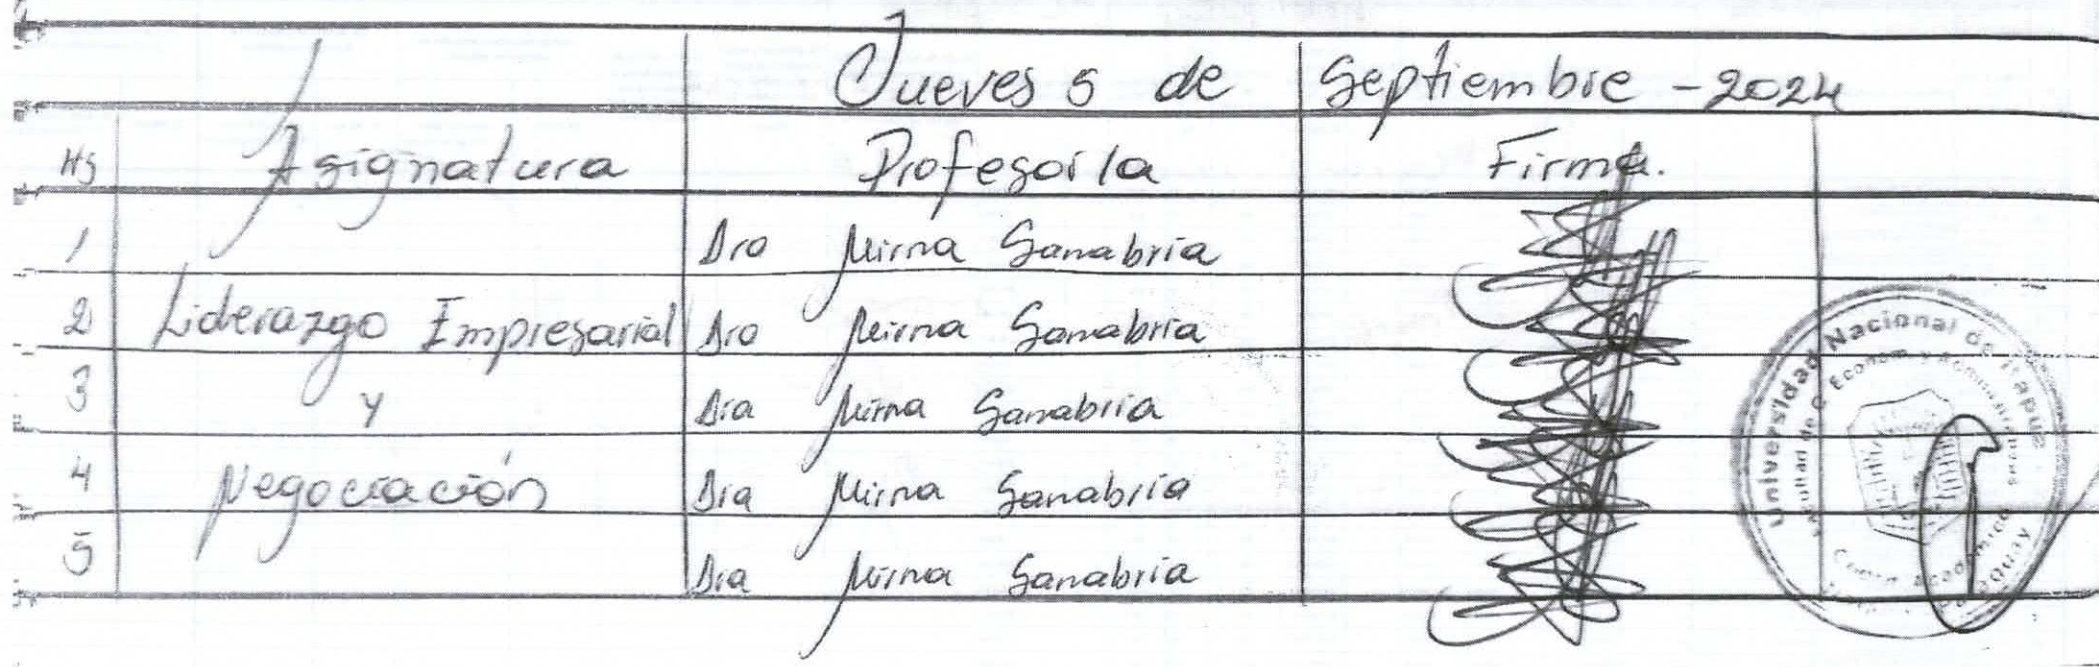 Jueves 5 de Septiembre - 2024
Hs Asignatura Profesor/a Firma.
1 Dra Mirna Sanabria
2 Liderazgo Empresarial Dra Mirna Sanabria
3 y Dra Mirna Sanabria
4 Negociación Dra Mirna Sanabria
5 Dra Mirna Sanabria
Universidad Nacional de Itapúa
Paraguay